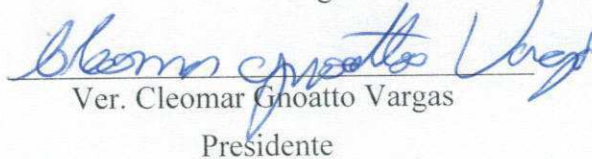 Cleomar Gnoatto Vargas
Ver. Cleomar Gnoatto Vargas
Presidente